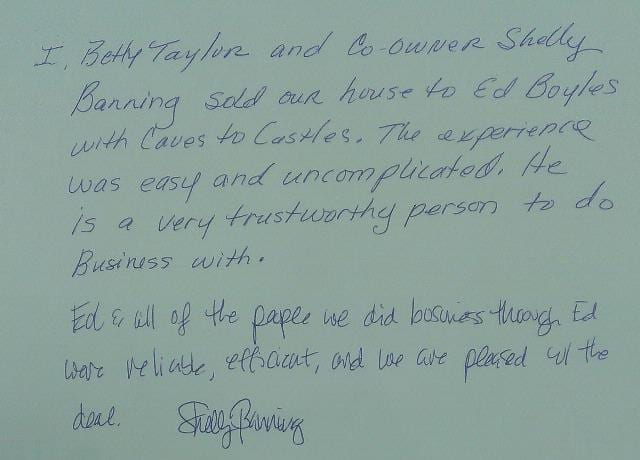 I, Betty Taylor and Co-owner Shelly
Banning sold our house to Ed Boyles
with Caves to Castles. The experience
was easy and uncomplicated. He
is a very trustworthy person to do
Business with.
Ed & all of the people we did business through Ed
were reliable, efficient, and we are pleased w/ the
deal. Shelly Banning